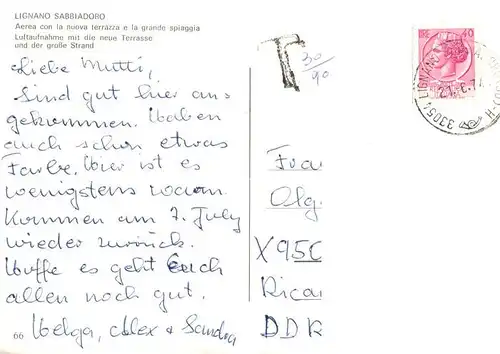 LIGNANO SABBIADORO
Aerea con la nuova terrazza e la grande spiaggia
Luftaufnahme mit die neue Terrasse
und der große Strand
Liebe Mutti,
Sind gut hier an
gekommen. Haben
auch schon etwas
Farbe. Hier ist es
wenigstens warm.
Kommen am 7. July
wieder zurück.
Hoffe es geht Euch
allen noch gut.
66
Helga, Alex + Sandra
T
30
90
LIRE 40
33054 LIGNANO
Frau
Olg
X 950
Rica
DDR